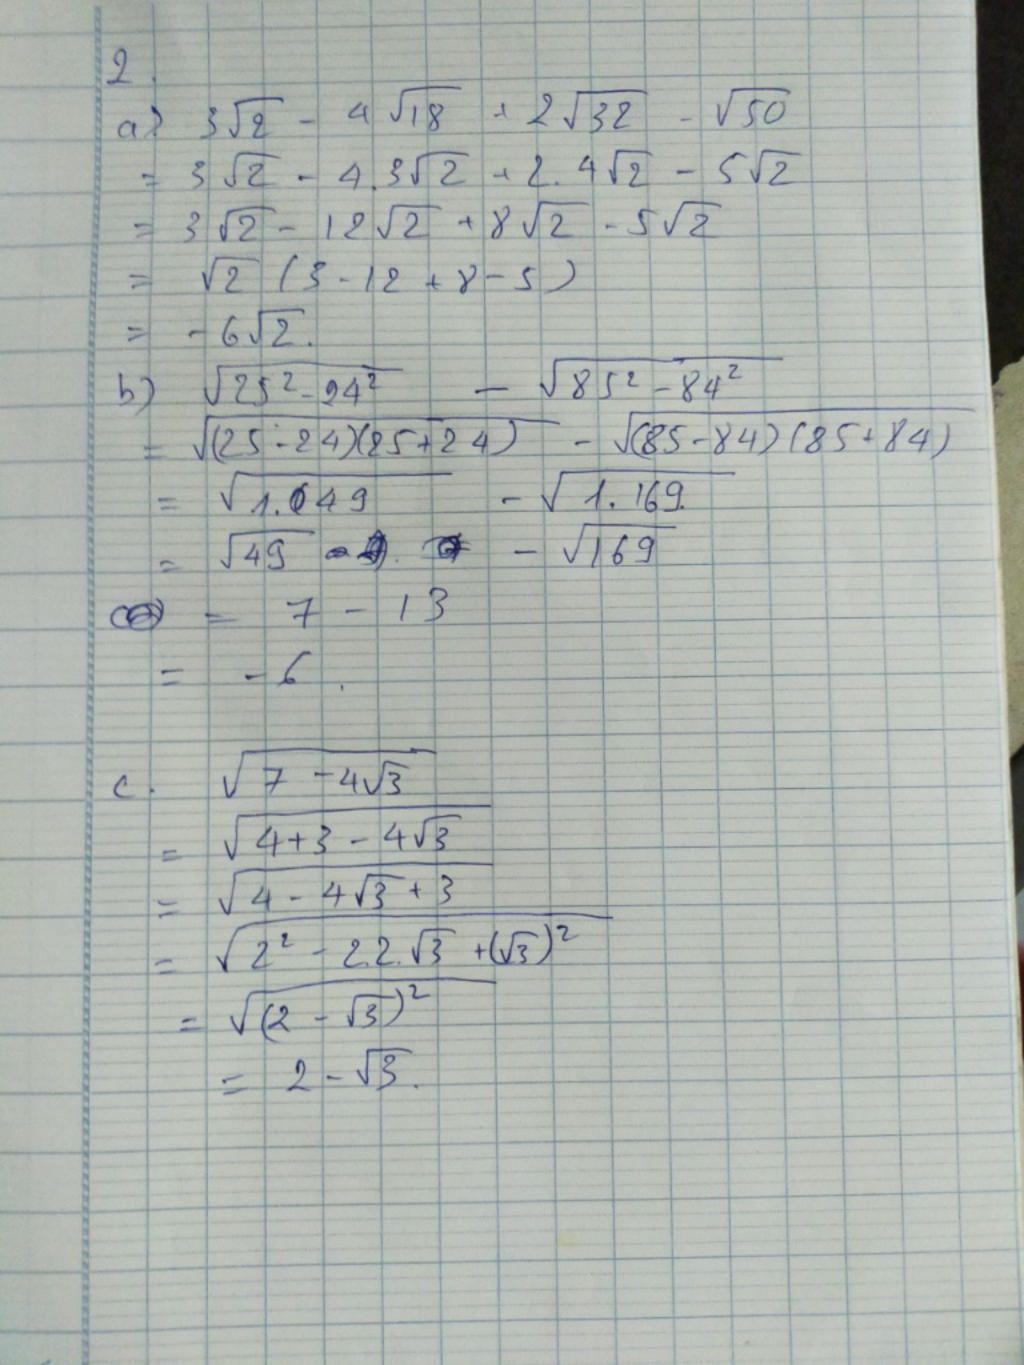 2.
a) 3√2 - 4√18 + 2√32 - √50
= 3√2 - 4.3√2 + 2.4√2 - 5√2
= 3√2 - 12√2 + 8√2 - 5√2
= √2 (3 - 12 + 8 - 5)
= -6√2.
b) √(25² - 24²) - √(85² - 84²)
= √((25-24)(25+24)) - √((85-84)(85+84))
= √(1.49) - √(1.169)
= √49 - √169
= 7 - 13
= -6.
c. √(7 - 4√3)
= √(4+3 - 4√3)
= √(4 - 4√3 + 3)
= √(2² - 2.2.√3 + (√3)²)
= √((2 - √3)²)
= 2 - √3.